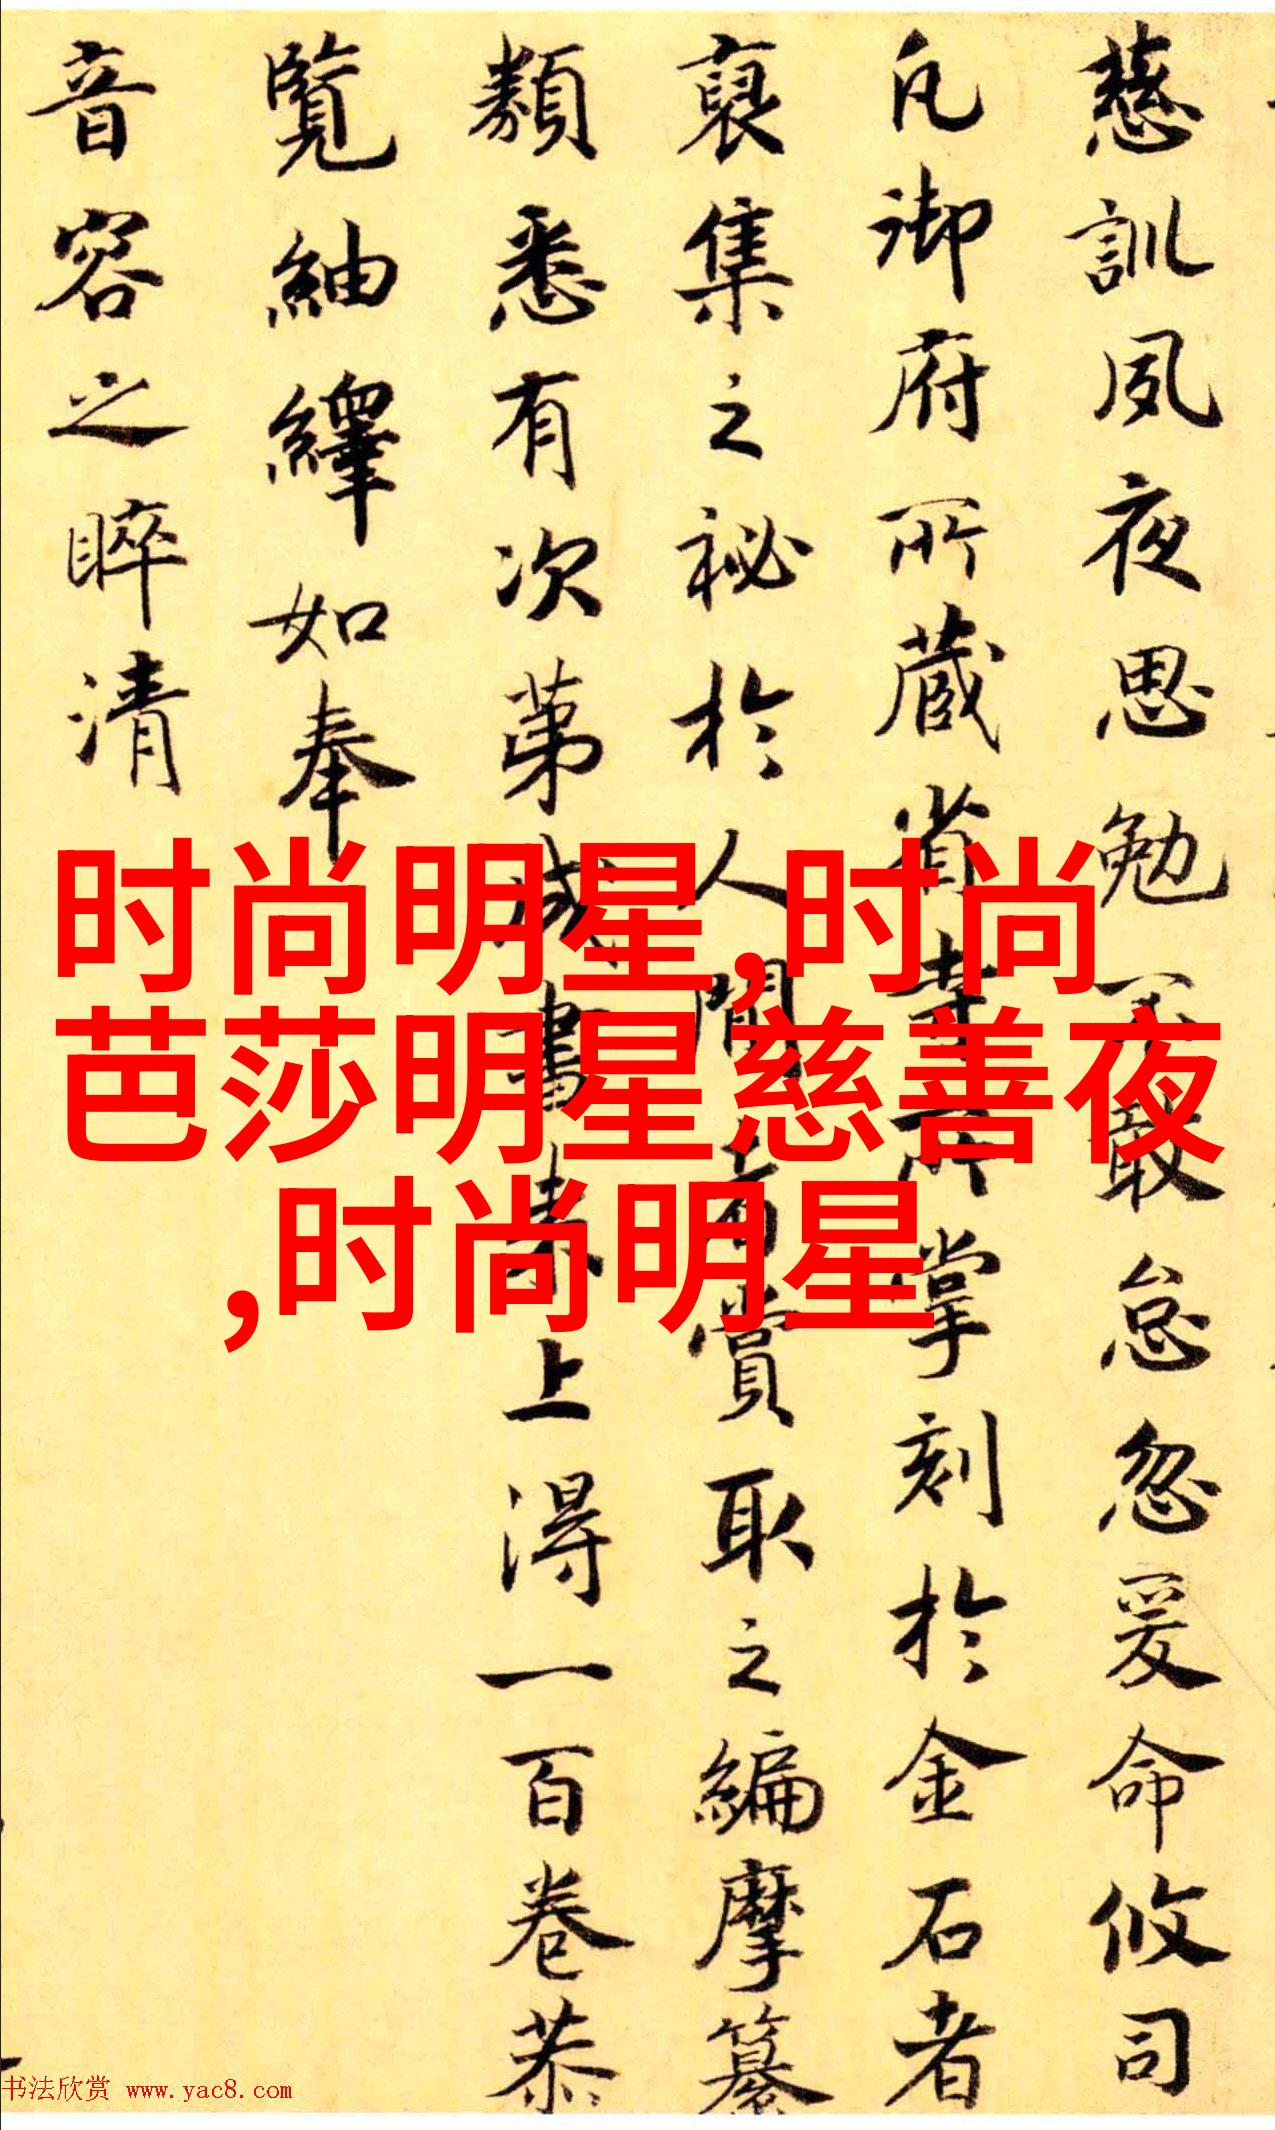 慈訓夙夜思勉不敢怠忽爰命攸司
凡御府所藏省寺所掌刻於金石者
裒集之秘於人間者賞取之編摩纂
類悉有次第成書來上得一百卷恭
覽紬繹如奉
音容之睟清
时尚明星,时尚
芭莎明星慈善夜
,时尚明星
书法欣赏 www.yac8.com